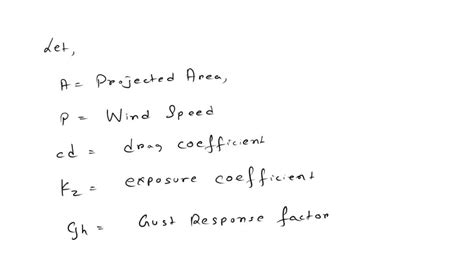 Let,
A = Projected Area,
P = Wind Speed
cd = drag coefficient
Kz = exposure coefficient
Gh = Gust Response factor